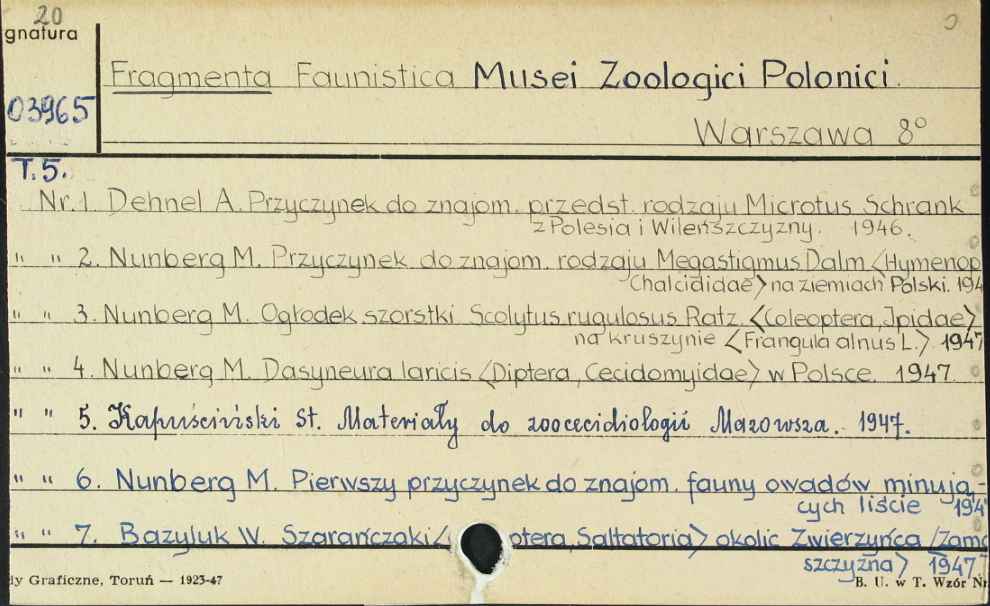 20
gnatura
Fragmenta Faunistica Musei Zoologici Polonici.
03965
Warszawa 8°
T. 5.
Nr. 1 Dehnel A. Przyczynek do znajom. przedst. rodzaju Microtus Schrank
z Polesia i Wileńszczyzny. 1946.
" " 2. Nunberg M. Przyczynek do znajom. rodzaju Megastigmus Dalm <Hymenop
Chalcididae> na ziemiach Polski. 194
" " 3. Nunberg M. Ogłodek szorstki Scolytus rugulosus Ratz. <Coleoptera, Jpidae>
na kruszynie <Frangula alnus L.> 1947
" " 4. Nunberg M. Dasyneura laricis <Diptera, Cecidomyidae> w Polsce. 1947.
" " 5. Kapuściński St. Materiały do zoocecidiologii Mazowsza. 1947.
" " 6. Nunberg M. Pierwszy przyczynek do znajom. fauny owadów minują-
cych liście 194
" " 7. Bazyluk W. Szarańczaki < ptera, Saltatoria> okolic Zwierzyńca /Zamo
szczyzna> 1947.
dy Graficzne, Toruń — 1923-47
B. U. w T. Wzór Nr